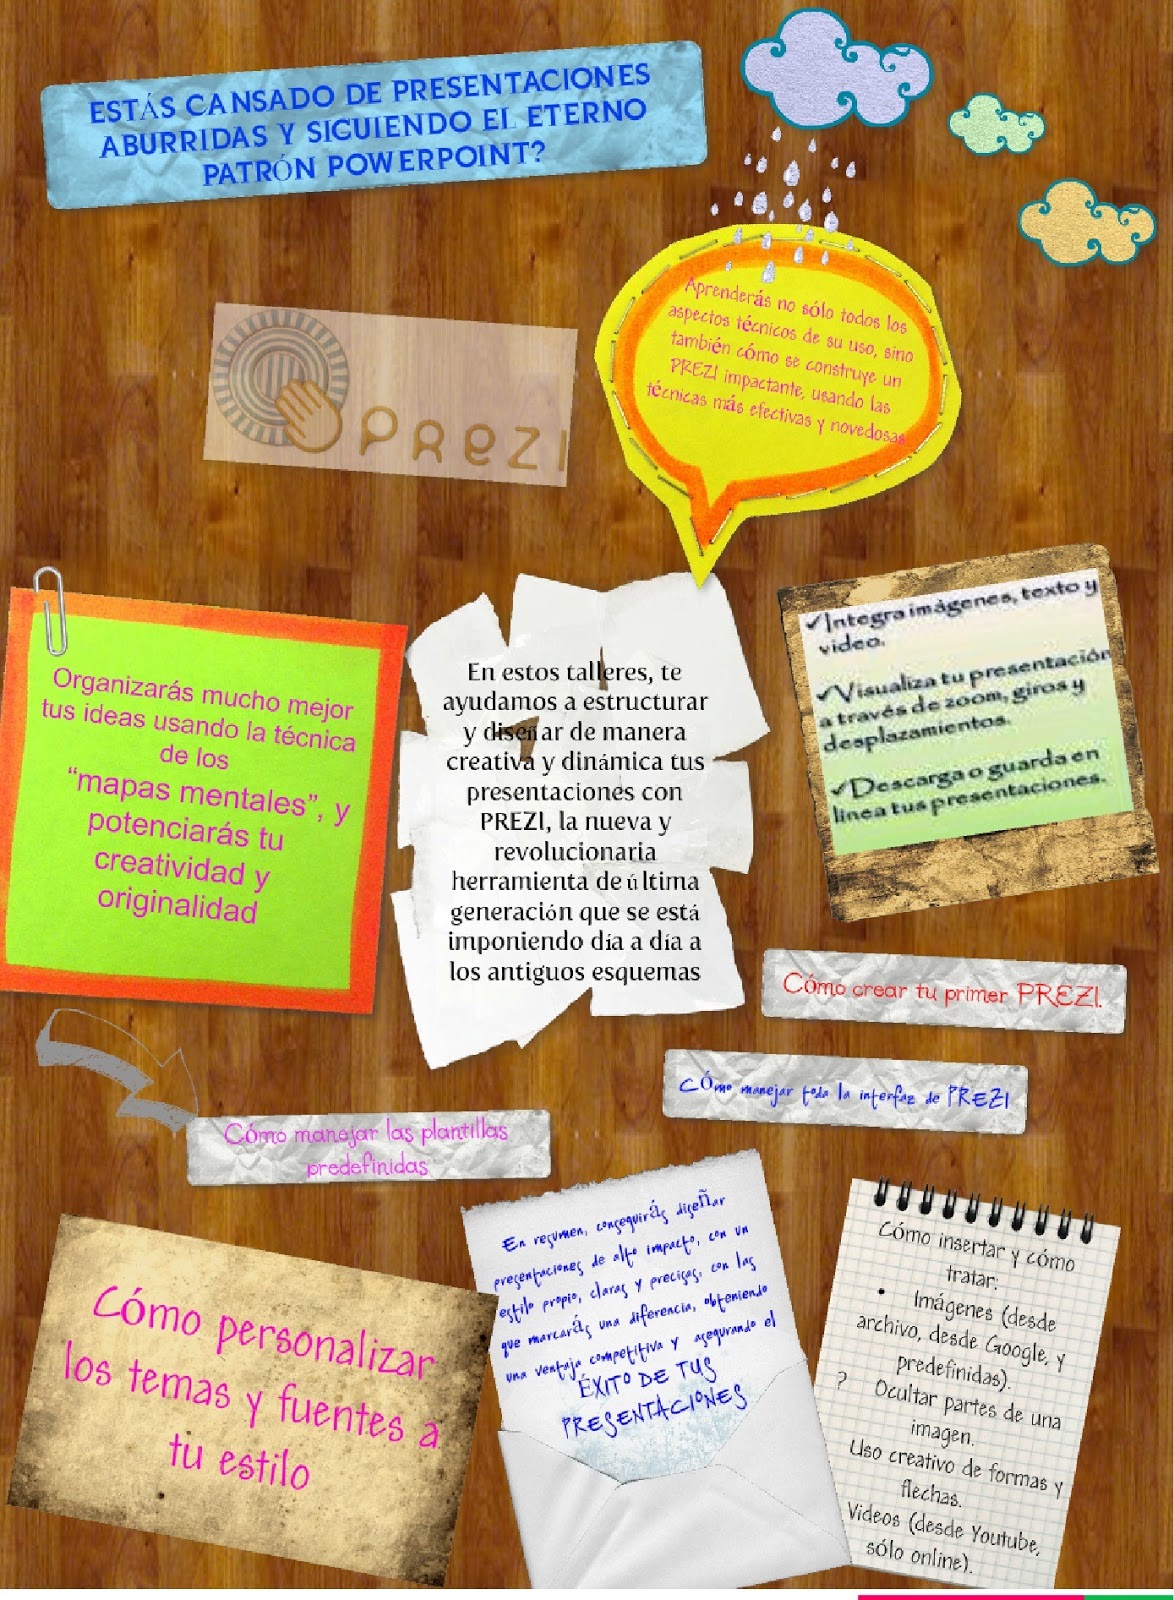 ESTÁS CANSADO DE PRESENTACIONES
ABURRIDAS Y SIGUIENDO EL ETERNO
PATRÓN POWERPOINT?
Aprenderás no sólo todos los
aspectos técnicos de su uso, sino
también cómo se construye un
PREZI impactante, usando las
técnicas más efectivas y novedosas
PREZI
Organizarás mucho mejor
tus ideas usando la técnica
de los
“mapas mentales”, y
potenciarás tu
creatividad y
originalidad
En estos talleres, te
ayudamos a estructurar
y diseñar de manera
creativa y dinámica tus
presentaciones con
PREZI, la nueva y
revolucionaria
herramienta de última
generación que se está
imponiendo día a día a
los antiguos esquemas
✓Integra imágenes, texto y
video.
✓Visualiza tu presentación
a través de zoom, giros y
desplazamientos.
✓Descarga o guarda en
línea tus presentaciones.
Cómo crear tu primer PREZI.
Cómo manejar toda la interfaz de PREZI
Cómo manejar las plantillas
predefinidas
Cómo personalizar
los temas y fuentes a
tu estilo
En resumen, conseguirás diseñar
presentaciones de alto impacto, con un
estilo propio, claras y precisas, con las
que marcarás una diferencia, obteniendo
una ventaja competitiva y asegurando el
ÉXITO DE TUS
PRESENTACIONES
Cómo insertar y cómo
tratar:
• Imágenes (desde
archivo, desde Google, y
predefinidas).
? Ocultar partes de una
imagen.
Uso creativo de formas y
flechas.
Videos (desde Youtube,
sólo online).